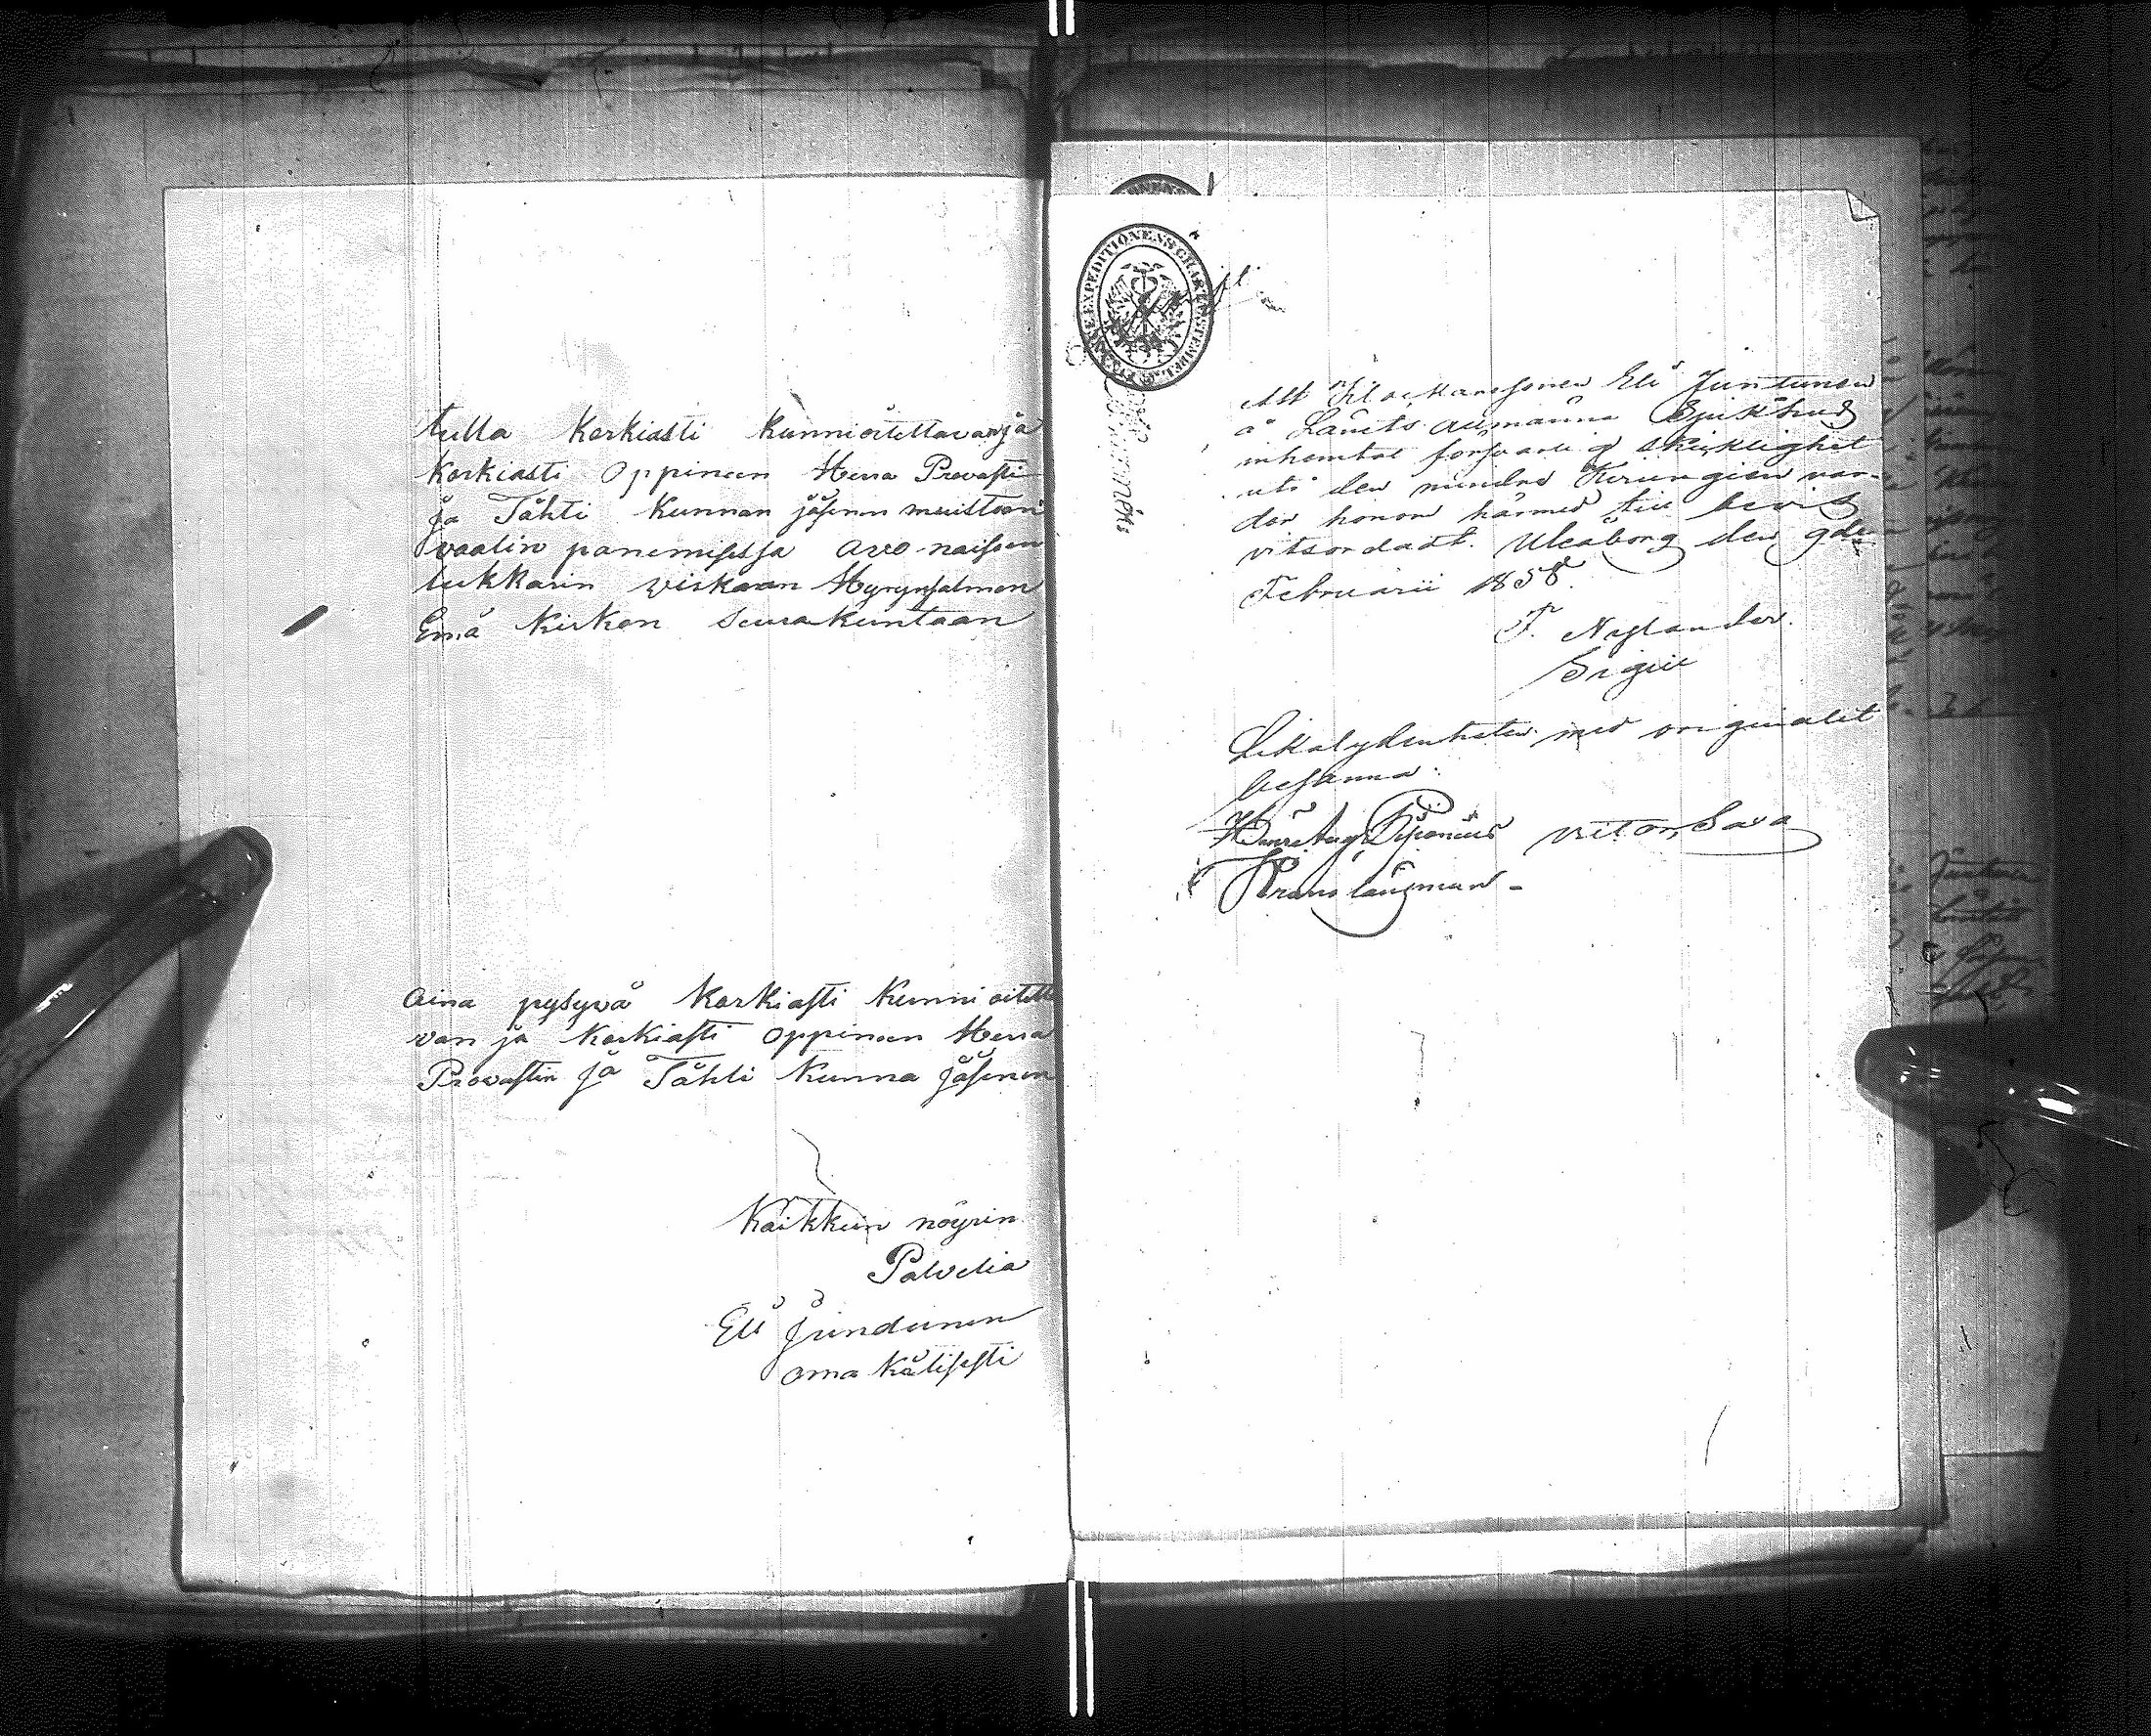 tulla Korkiasti Kunnioitettavan ja
Korkiasti Oppineen Herra Provasti
ja Tähti Kunnan jäsenen muistoon
vaalin panemisessa arvo-naisseen
lukkarin virkaan Hyrynsalmen
Emä Kirkon Seurakuntaan
Aina pysyvä Korkiasti Kunnioitetta
van ja Korkiasti Oppineen Herra
Provastin ja Tähti Kunna jäsenen
Kaikkein nöyrin
Palvelia
Eli Jundunen
oma Kätisesti
Att Klockaresonen Eli Juntunen
å Länets allmänna Sjukhus
inhemtat försvarlig skicklighet
uti den mindre Kirurgien var-
der honom härmed till bevis
vitsordadt. Uleåborg den 9de
Februarii 1858.
F. Nylander.
Sigill
Likalydenheten med originalet
besanna:
Victor Sava
Frans Långman